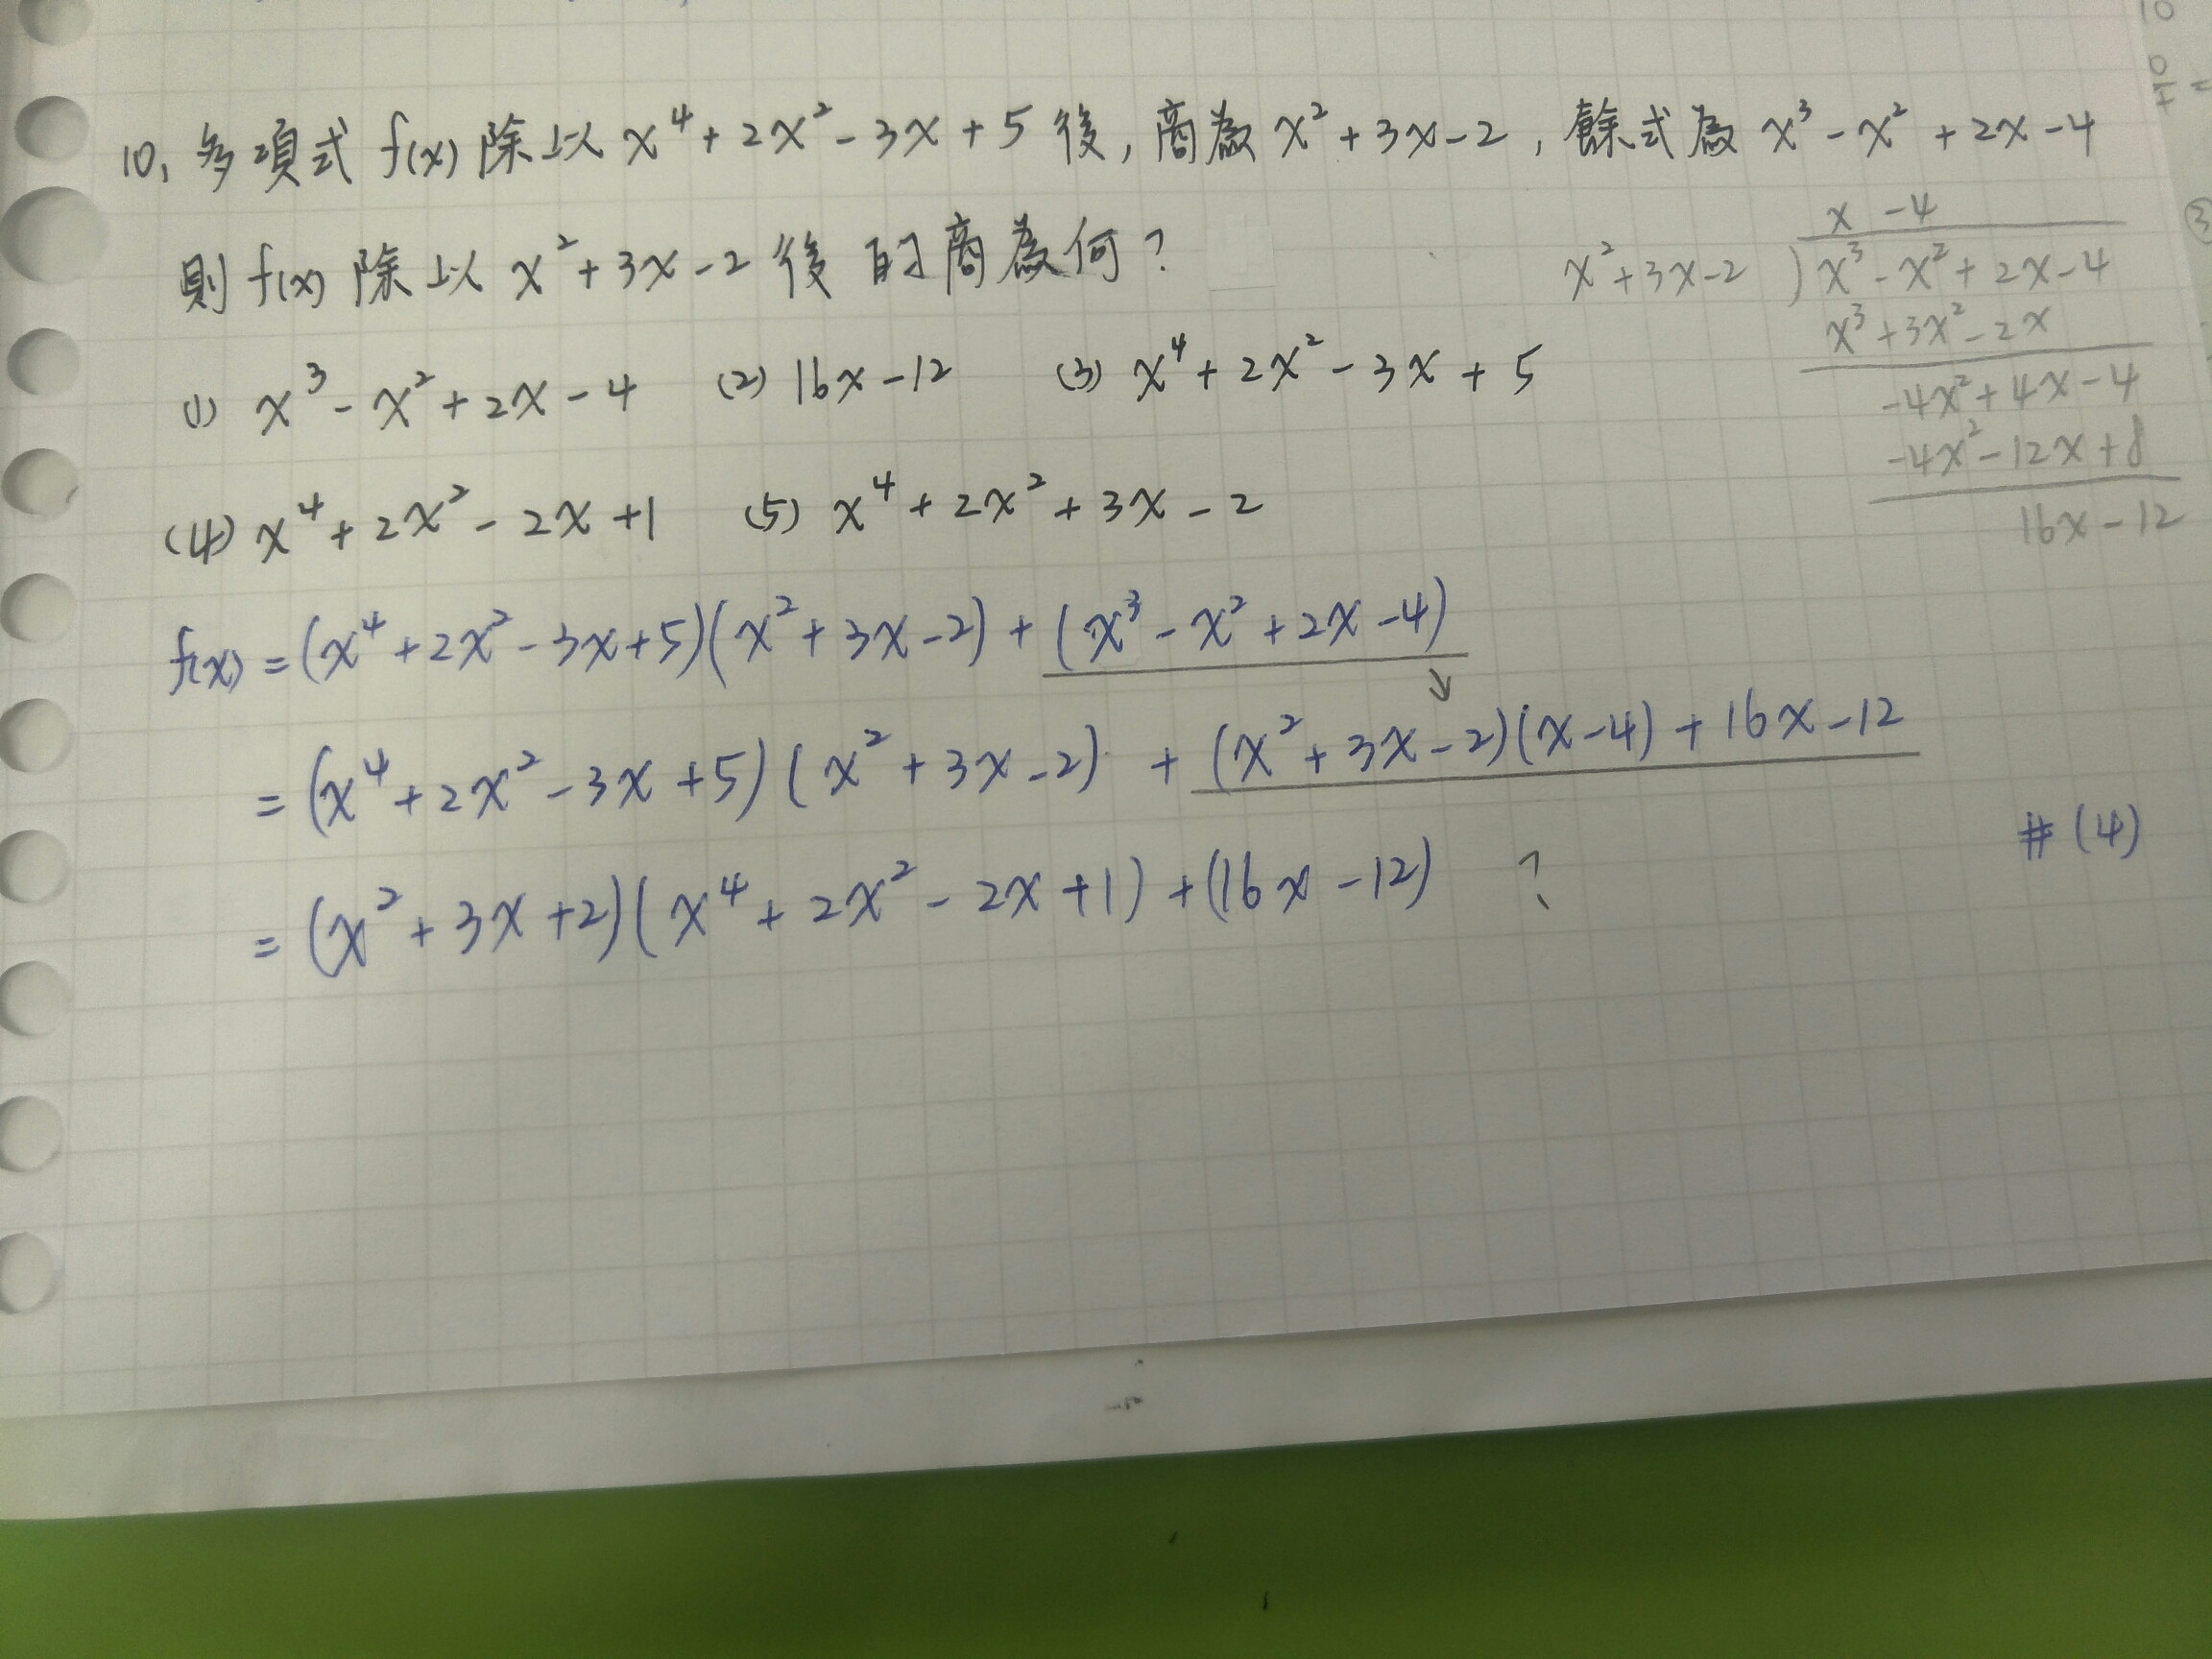 10, 多項式 f(x) 除以 x⁴ + 2x² - 3x + 5 後, 商為 x² + 3x - 2, 餘式為 x³ - x² + 2x - 4
則 f(x) 除以 x² + 3x - 2 後 的 商為何?
(1) x³ - x² + 2x - 4 (2) 16x - 12 (3) x⁴ + 2x² - 3x + 5
(4) x⁴ + 2x² - 2x + 1 (5) x⁴ + 2x² + 3x - 2
x - 4
x² + 3x - 2 ) x³ - x² + 2x - 4
x³ + 3x² - 2x
-4x² + 4x - 4
-4x² - 12x + 8
16x - 12
f(x) = (x⁴ + 2x² - 3x + 5)(x² + 3x - 2) + (x³ - x² + 2x - 4)
↘
= (x⁴ + 2x² - 3x + 5)(x² + 3x - 2) + (x² + 3x - 2)(x - 4) + 16x - 12
= (x² + 3x + 2)(x⁴ + 2x² - 2x + 1) + (16x - 12) ?
# (4)
③